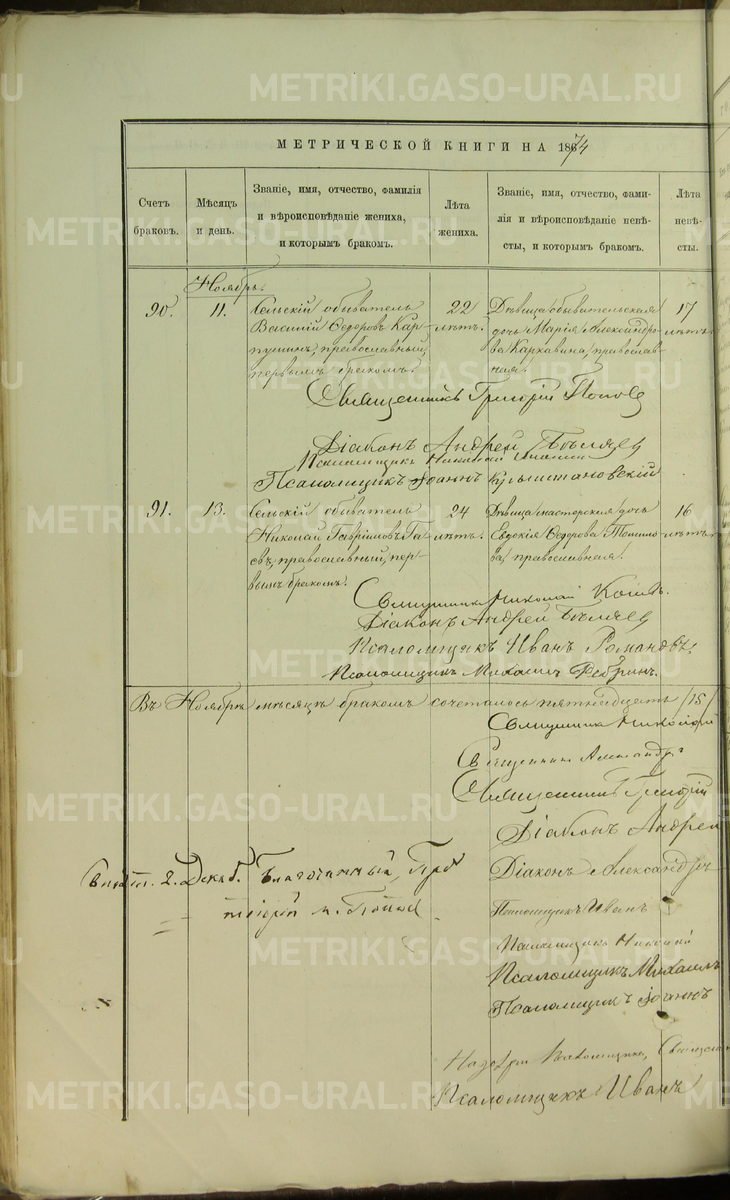 METRIKI.GASO-URAL.RU
МЕТРИЧЕСКОЙ КНИГИ НА 1874
Счетъ браковъ.
Мѣсяцъ и день.
Званіе, имя, отчество, фамилія
и вѣроисповѣданіе жениха,
и которымъ бракомъ.
Лѣта
жениха.
Званіе, имя, отчество, фами-
лія и вѣроисповѣданіе невѣ-
сты, и которымъ бракомъ.
Лѣта
невѣ-
сты.
Ноябрь.
90.
11.
Сельскій обыватель
Василій Ѳедоровъ Кар-
пушинъ, православный,
первымъ бракомъ.
22
лѣтъ.
Дѣвица обывательская
дочь Марія Александро-
ва Каркавина, православ-
ная.
17
лѣтъ.
Священникъ Григорій Поповъ
Діаконъ Андрей Бѣляев
Псаломщикъ Николай
Псаломщикъ Іоаннъ
91.
13.
Сельскій обыватель
Николай Гавріиловъ Га-
евъ, православный, пер-
вымъ бракомъ.
24
лѣтъ.
Дѣвица мастерская дочь
Евдокія Ѳедорова
православная.
16
лѣтъ
Священникъ Николай
Діаконъ Андрей Бѣляев
Псаломщикъ Иванъ Романовъ.
Псаломщикъ Михаилъ
Въ Ноябрѣ мѣсяцѣ бракомъ сочеталось пятнадцать /15/
Священникъ Николай
Священникъ Александръ
Священникъ Григорій
Діаконъ Андрей
2. Декаб. Благочинный, Про
Діаконъ Александръ
тоіерей П. Поповъ
Псаломщикъ Иванъ
Псаломщикъ Николай
Псаломщикъ Михаилъ
Псаломщикъ Іоаннъ
Псаломщикъ Иванъ